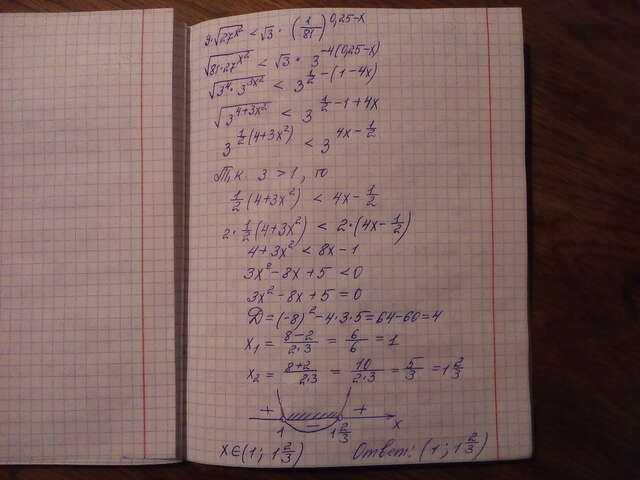 9·√27^x² < √3 · (1/81)^0,25-x
√81·27^x² < √3 · 3^-4(0,25-x)
√3^4·3^3x² < 3^1/2-(1-4x)
√3^4+3x² < 3^1/2-1+4x
3^1/2(4+3x²) < 3^4x-1/2
Т.к 3 > 1, то
1/2(4+3x²) < 4x-1/2
2·1/2(4+3x²) < 2·(4x-1/2)
4+3x² < 8x-1
3x²-8x+5 <0
3x²-8x+5=0
D=(-8)²-4·3·5=64-60=4
x₁ = 8-2/2·3 = 6/6 = 1
x₂ = 8+2/2·3 = 10/2·3 = 5/3 = 1 2/3
+ - +
1 1 2/3 x
x∈(1; 1 2/3) Ответ: (1; 1 2/3)